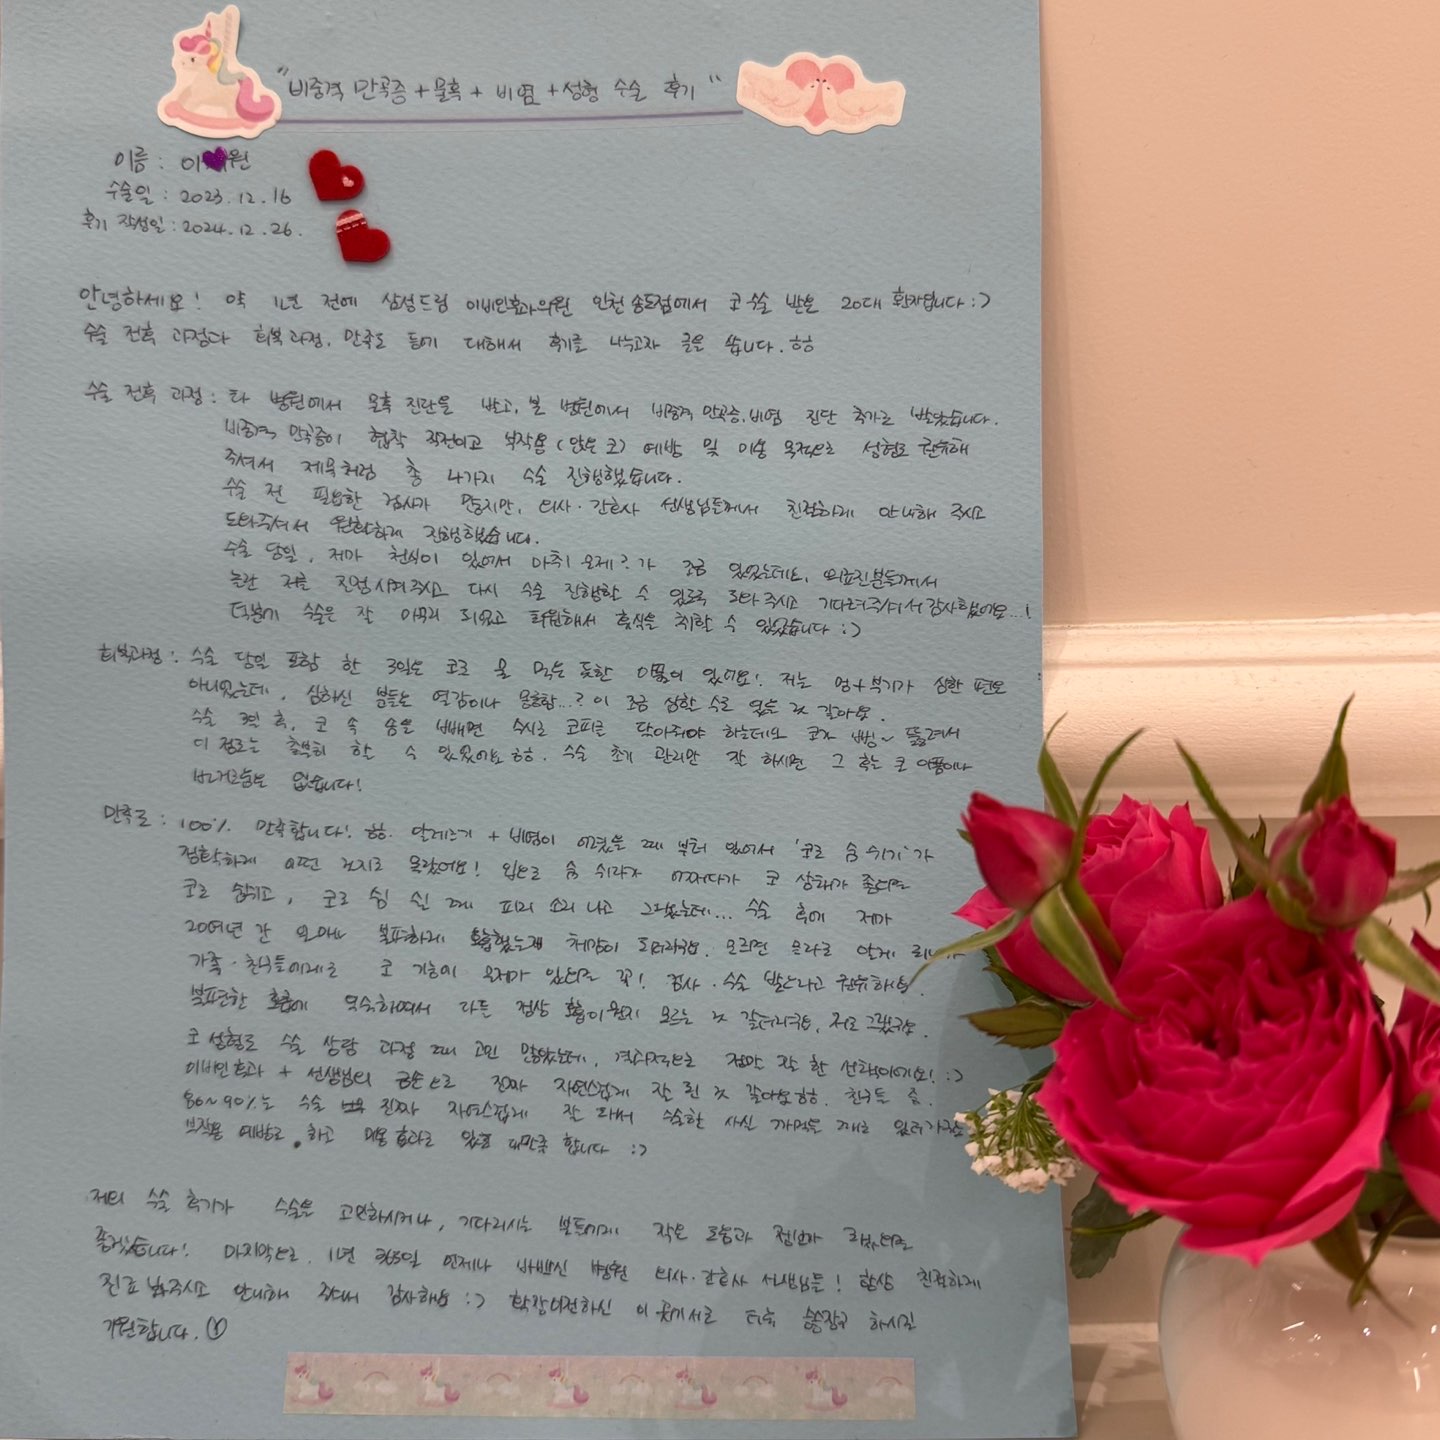 "비중격 만곡증 + 물혹 + 비염 + 성형 수술 후기"
이름 : 이 원
수술일 : 2023.12.16
후기 작성일 : 2024.12.26.
안녕하세요! 약 1년 전에 삼성드림 이비인후과의원 인천송도점에서 코 수술 받은 20대 환자입니다 :)
수술 전후 과정과 회복과정, 만족도 등에 대해서 후기를 나누고자 글을 씁니다. ㅎㅎ
수술 전후 과정 : 타 병원에서 물혹 진단을 받고, 본 병원에서 비중격 만곡증, 비염 진단 추가로 받았습니다.
비중격 만곡증이 협착 직전이고 부작용 (안장 코) 예방 및 미용 목적으로 성형도 권유해
주셔서 제목처럼 총 4가지 수술 진행했습니다.
수술 전 필요한 검사가 많지만, 의사·간호사 선생님들께서 친절하게 안내해 주시고
도와주셔서 원활하게 진행했습니다.
수술 당일, 제가 천식이 있어서 마취 문제?가 조금 있었는데요, 의료진분들께서
놀란 저를 진정시켜주시고 다시 수술 진행할 수 있도록 도와주시고 기다려주셔서 감사했어요...!
덕분에 수술은 잘 마무리 되었고 퇴원해서 휴식을 취할 수 있었습니다 :)
회복과정 : 수술 당일 포함 한 3일은 코로 물 먹는 듯한 아픔이 있어요! 저는 멍+부기가 심한 편은
아니었는데, 심하신 분들은 열감이나 몽롱함...? 이 조금 심할 수도 있을 것 같아요.
수술 3일 후, 코 속 솜을 빼면 수시로 코피를 닦아줘야 하는데요 코가 뻥~ 뚫려서
이 정도는 충분히 할 수 있었어요 ㅎㅎ. 수술 초기 관리만 잘 하시면 그 후는 큰 아픔이나
번거로움은 없습니다!
만족도 : 100% 만족합니다! ㅎㅎ. 알레르기 + 비염이 어렸을 때 부터 있어서 '코로 숨 쉬기'가
정확하게 어떤 건지도 몰랐어요! 입으로 숨 쉬다가 어쩌다가 코 상태가 좋으면
코로 숨쉬고, 코로 숨 쉴 때 피리 소리 나고 그랬는데... 수술 후에 제가
20여년 간 불편하게 호흡했는게 체감이 되더라구요.
가족·친구들에게도 코 기능에 문제가 있으면 꼭! 검사·수술 받으라고 권유하세요.
불편한 호흡에 익숙하여서 다들 정상 호흡이 뭔지 모르는 것 같더라구요, 저도 그랬구요.
코 성형도 수술 상담 과정 때 고민 많았는데, 결과적으로 정말 잘 한 선택이에요! :)
이비인후과 + 선생님의 금손으로 진짜 자연스럽게 잘 된 것 같아요 ㅎㅎ. 친구들 중
80~90%는 수술 진짜 자연스럽게 잘 돼서 수술한 사실 까먹을 때도 있더라구요
부작용 예방도 하고 미용 효과도 있어 대만족 합니다 :)
저의 수술 후기가 수술을 고민하시거나, 기다리시는 분들에게 작은 도움과 정보가 되었으면
좋겠습니다! 마지막으로, 1년 365일 언제나 바쁘신 병원 의사·간호사 선생님들! 항상 친절하게
진료 봐주시고 안내해 주셔서 감사해요 :) 확장이전하신 이 곳에서도 더욱 승승장구 하시길
기원합니다.